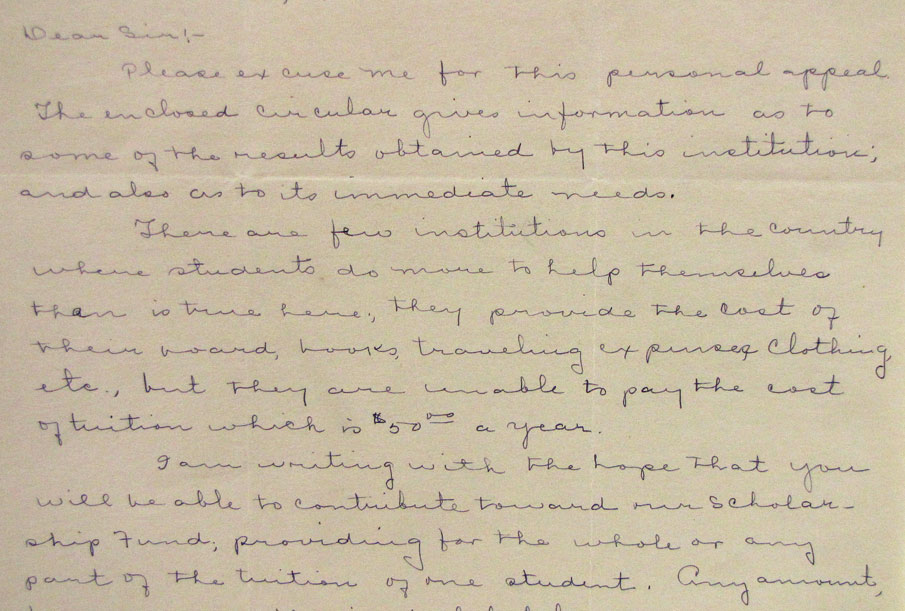 Dear Sir:-
Please excuse me for this personal appeal.
The enclosed circular gives information as to
some of the results obtained by this institution;
and also as to its immediate needs.
There are few institutions in the country
where students do more to help themselves
than is true here; they provide the cost of
their board, books, traveling expenses, clothing,
etc., but they are unable to pay the cost
of tuition which is $50.00 a year.
I am writing with the hope that you
will be able to contribute toward our Scholar-
ship Fund; providing for the whole or any
part of the tuition of one student. Any amount,